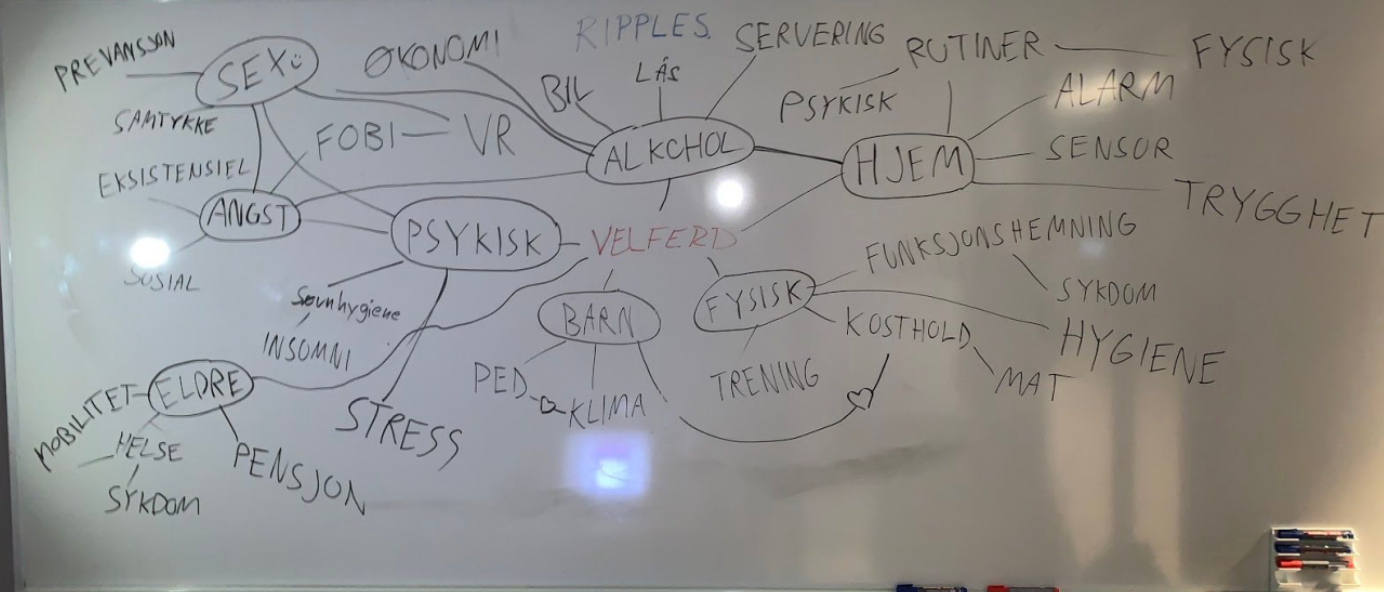 PREVANSJON
SEX
ØKONOMI
RIPPLES.
SERVERING
RUTINER
FYSISK
BIL
LÅS
PSYKISK
ALARM
SAMTYKKE
FOBI
VR
ALKOHOL
HJEM
SENSOR
EKSISTENSIEL
ANGST
PSYKISK
VELFERD
TRYGGHET
SOSIAL
FUNKSJONSHEMNING
SYKDOM
Søvnhygiene
INSOMNI
BARN
FYSISK
KOSTHOLD
HYGIENE
MAT
ELDRE
MOBILITET
HELSE
SYKDOM
PENSJON
STRESS
PED
KLIMA
TRENING